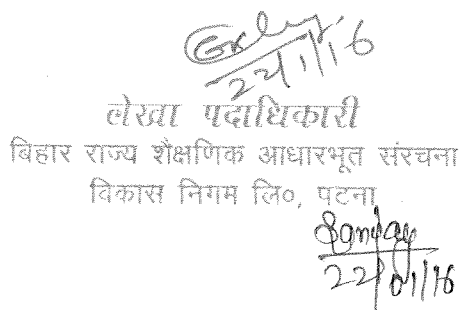 22/1/16
लेखा पदाधिकारी
बिहार राज्य शैक्षणिक आधारभूत संरचना
विकास निगम लि०, पटना
Sanjay
22/01/16